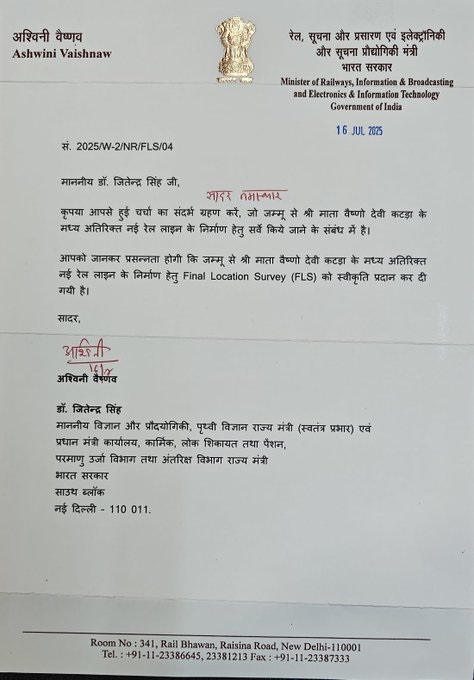 अश्विनी वैष्णव
Ashwini Vaishnaw
रेल, सूचना और प्रसारण एवं इलेक्ट्रॉनिकी
और सूचना प्रौद्योगिकी मंत्री
भारत सरकार
Minister of Railways, Information & Broadcasting
and Electronics & Information Technology
Government of India
16 JUL 2025
सं. 2025/W-2/NR/FLS/04
माननीय डॉ. जितेन्द्र सिंह जी,
सादर नमस्कार
कृपया आपसे हुई चर्चा का संदर्भ ग्रहण करें, जो जम्मू से श्री माता वैष्णो देवी कटड़ा के
मध्य अतिरिक्त नई रेल लाइन के निर्माण हेतु सर्वे किये जाने के संबंध में है।
आपको जानकर प्रसन्नता होगी कि जम्मू से श्री माता वैष्णो देवी कटड़ा के मध्य अतिरिक्त
नई रेल लाइन के निर्माण हेतु Final Location Survey (FLS) को स्वीकृति प्रदान कर दी
गयी है।
सादर,
अश्विनी
16/7
अश्विनी वैष्णव
डॉ. जितेन्द्र सिंह
माननीय विज्ञान और प्रौदयोगिकी, पृथ्वी विज्ञान राज्य मंत्री (स्वतंत्र प्रभार) एवं
प्रधान मंत्री कार्यालय, कार्मिक, लोक शिकायत तथा पेंशन,
परमाणु उर्जा विभाग तथा अंतरिक्ष विभाग राज्य मंत्री
भारत सरकार
साउथ ब्लॉक
नई दिल्ली - 110 011.
Room No : 341, Rail Bhawan, Raisina Road, New Delhi-110001
Tel. : +91-11-23386645, 23381213 Fax : +91-11-23387333